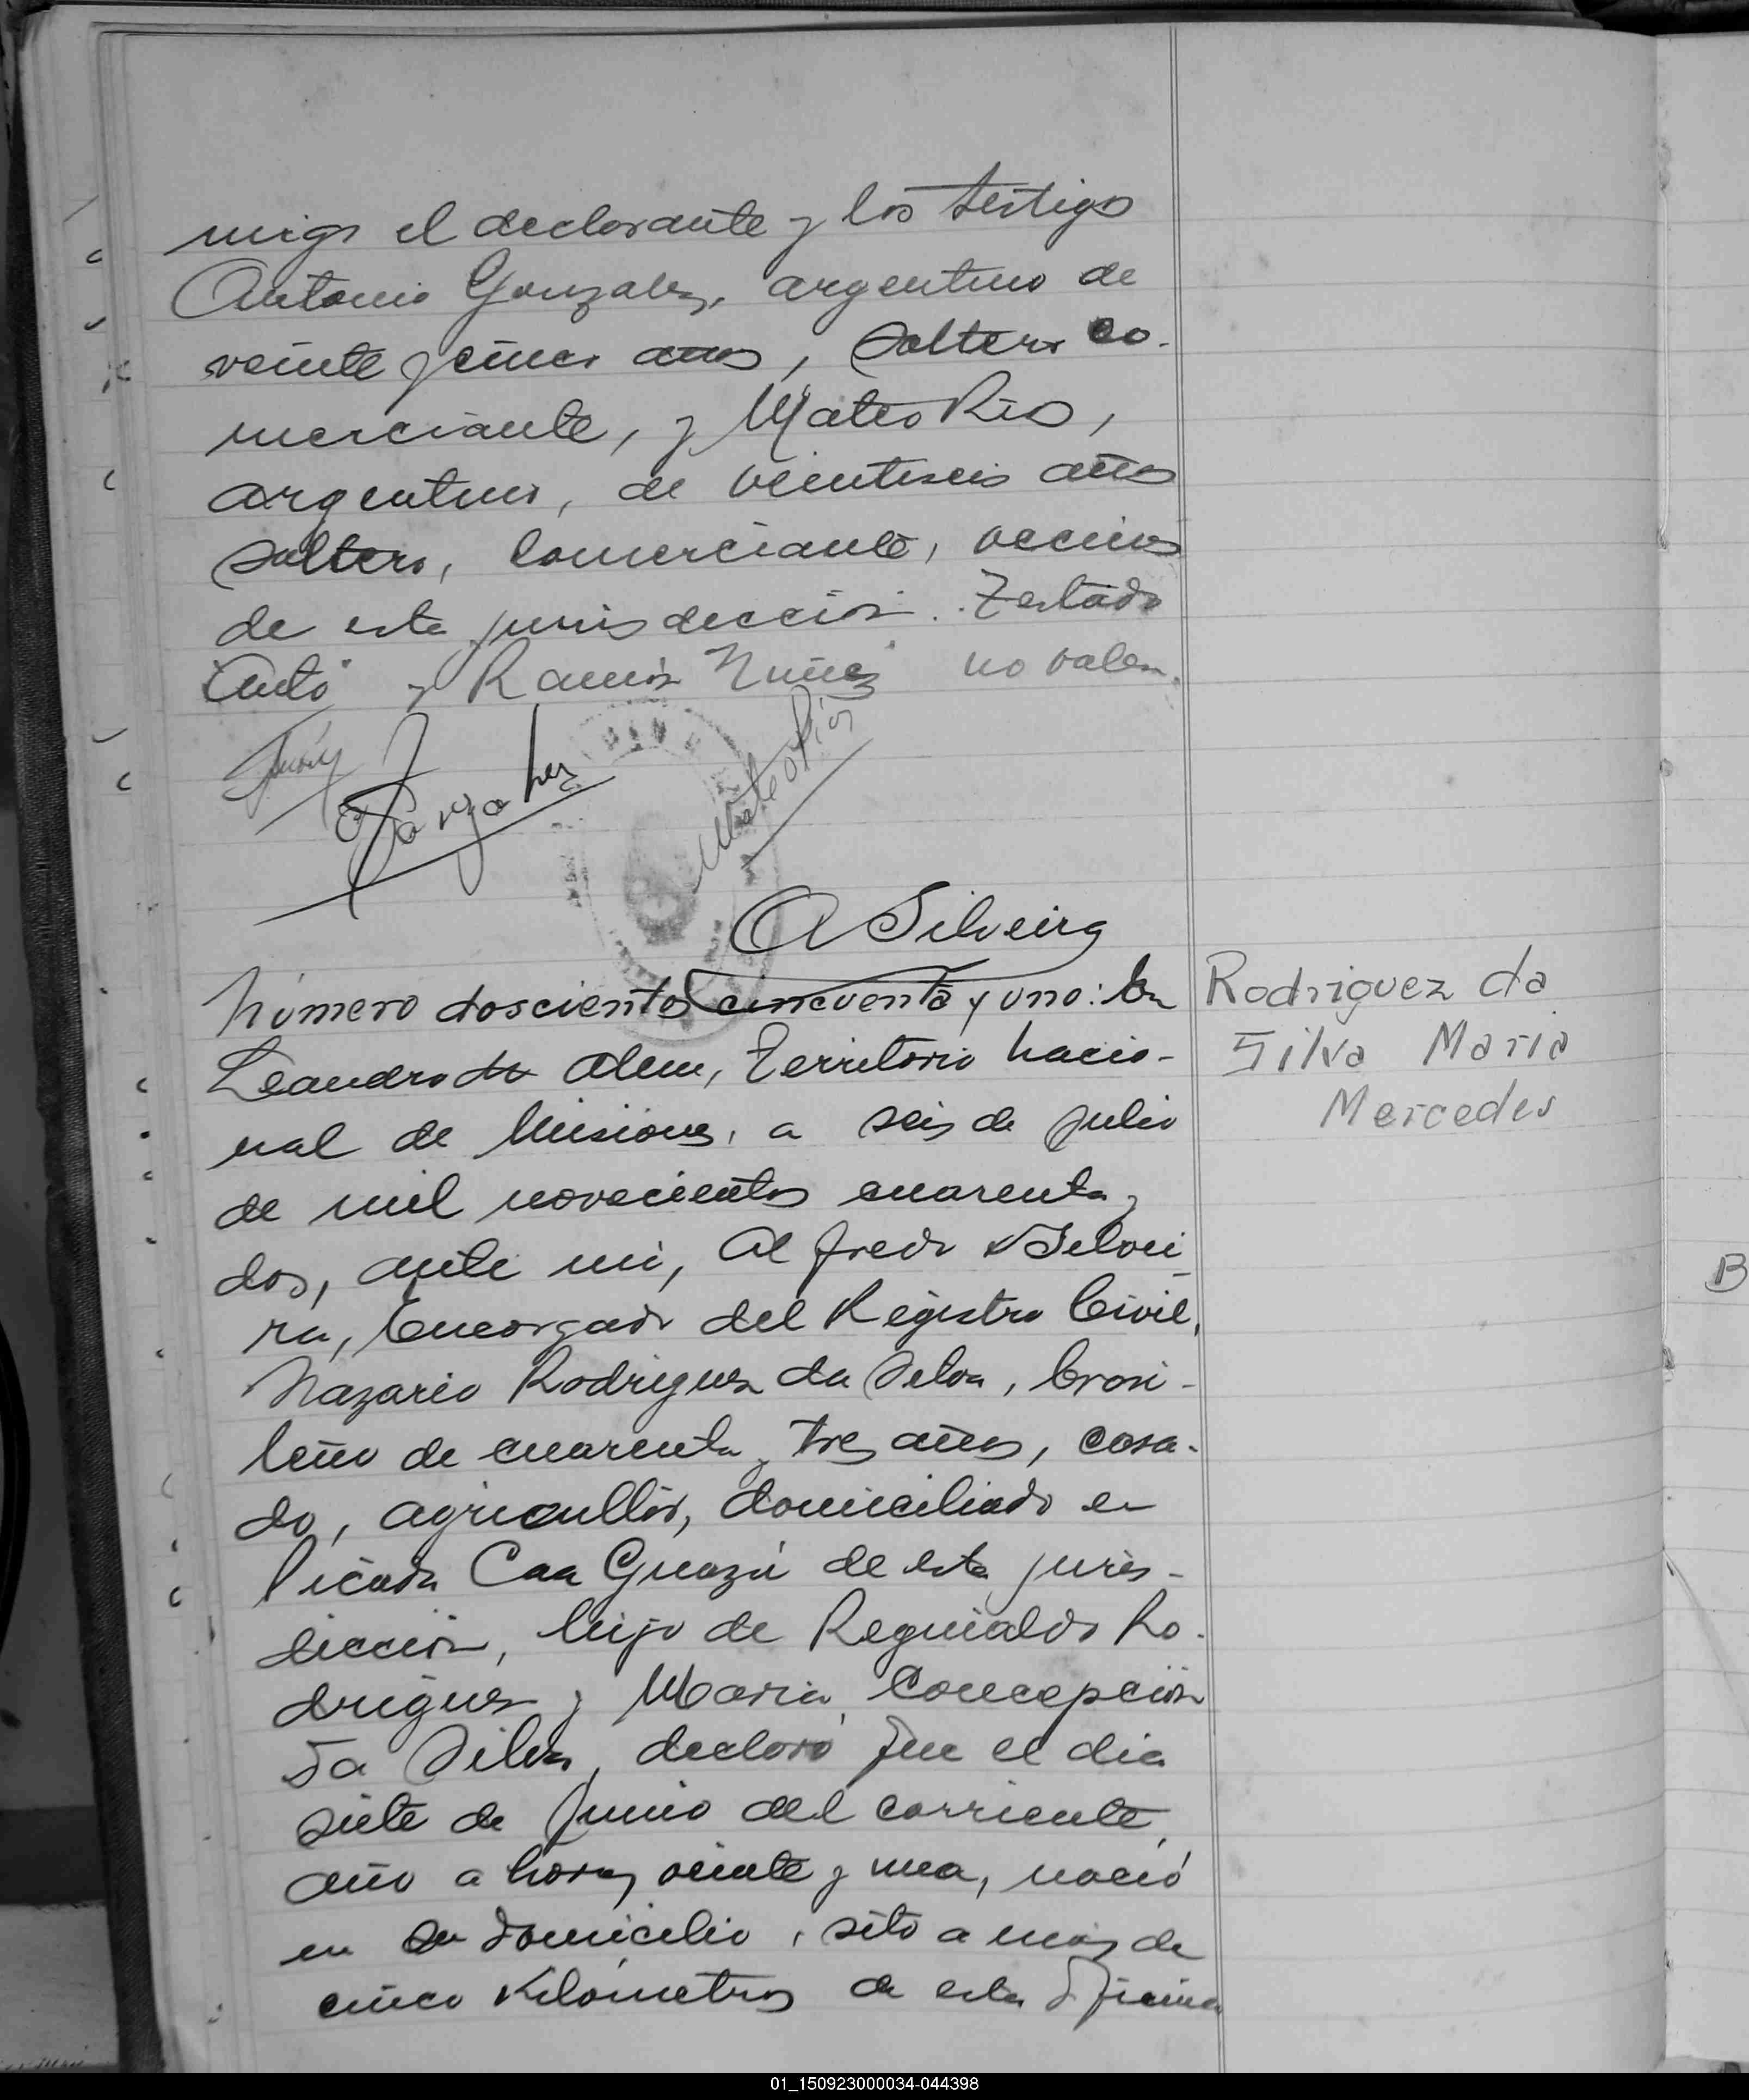 migo el declarante y los testigo
Antonio Gonzalez, argentino de
veinte y cinco años, soltero co-
merciante, y Mateo Rio,
argentino, de veintiseis años
soltero, comerciante, vecinos
de esta jurisdeccion. Testado
"Anto" y Ramón Nuñez no valen.
Gonzalez
Mateo Rios
A Silveira
Número doscientos cincuenta y uno: En
Rodriguez da
Leandro de Alem, Territorio Nacio-
Silva Maria
nal de Misiones, a seis de Julio
Mercedes
de mil novecientos cuarenta y
dos, ante mi, Alfredo Silvei
ra, Encargado del Registro Civil,
B
Nazario Rodriguez da Silva, brasi-
leño de cuarenta y tres años, casa-
do, agricultor, domiciliado en
Picada Caa Guazú de esta juris-
diccion, hijo de Reguialdo Ro-
driguez y Maria Concepción
Da Silva, declaró que el dia
siete de Junio del corriente
año a horas veinte y una, nació
en su domicilio, sito a mas de
cinco Kilómetros de esta Oficina
01_150923000034-044398